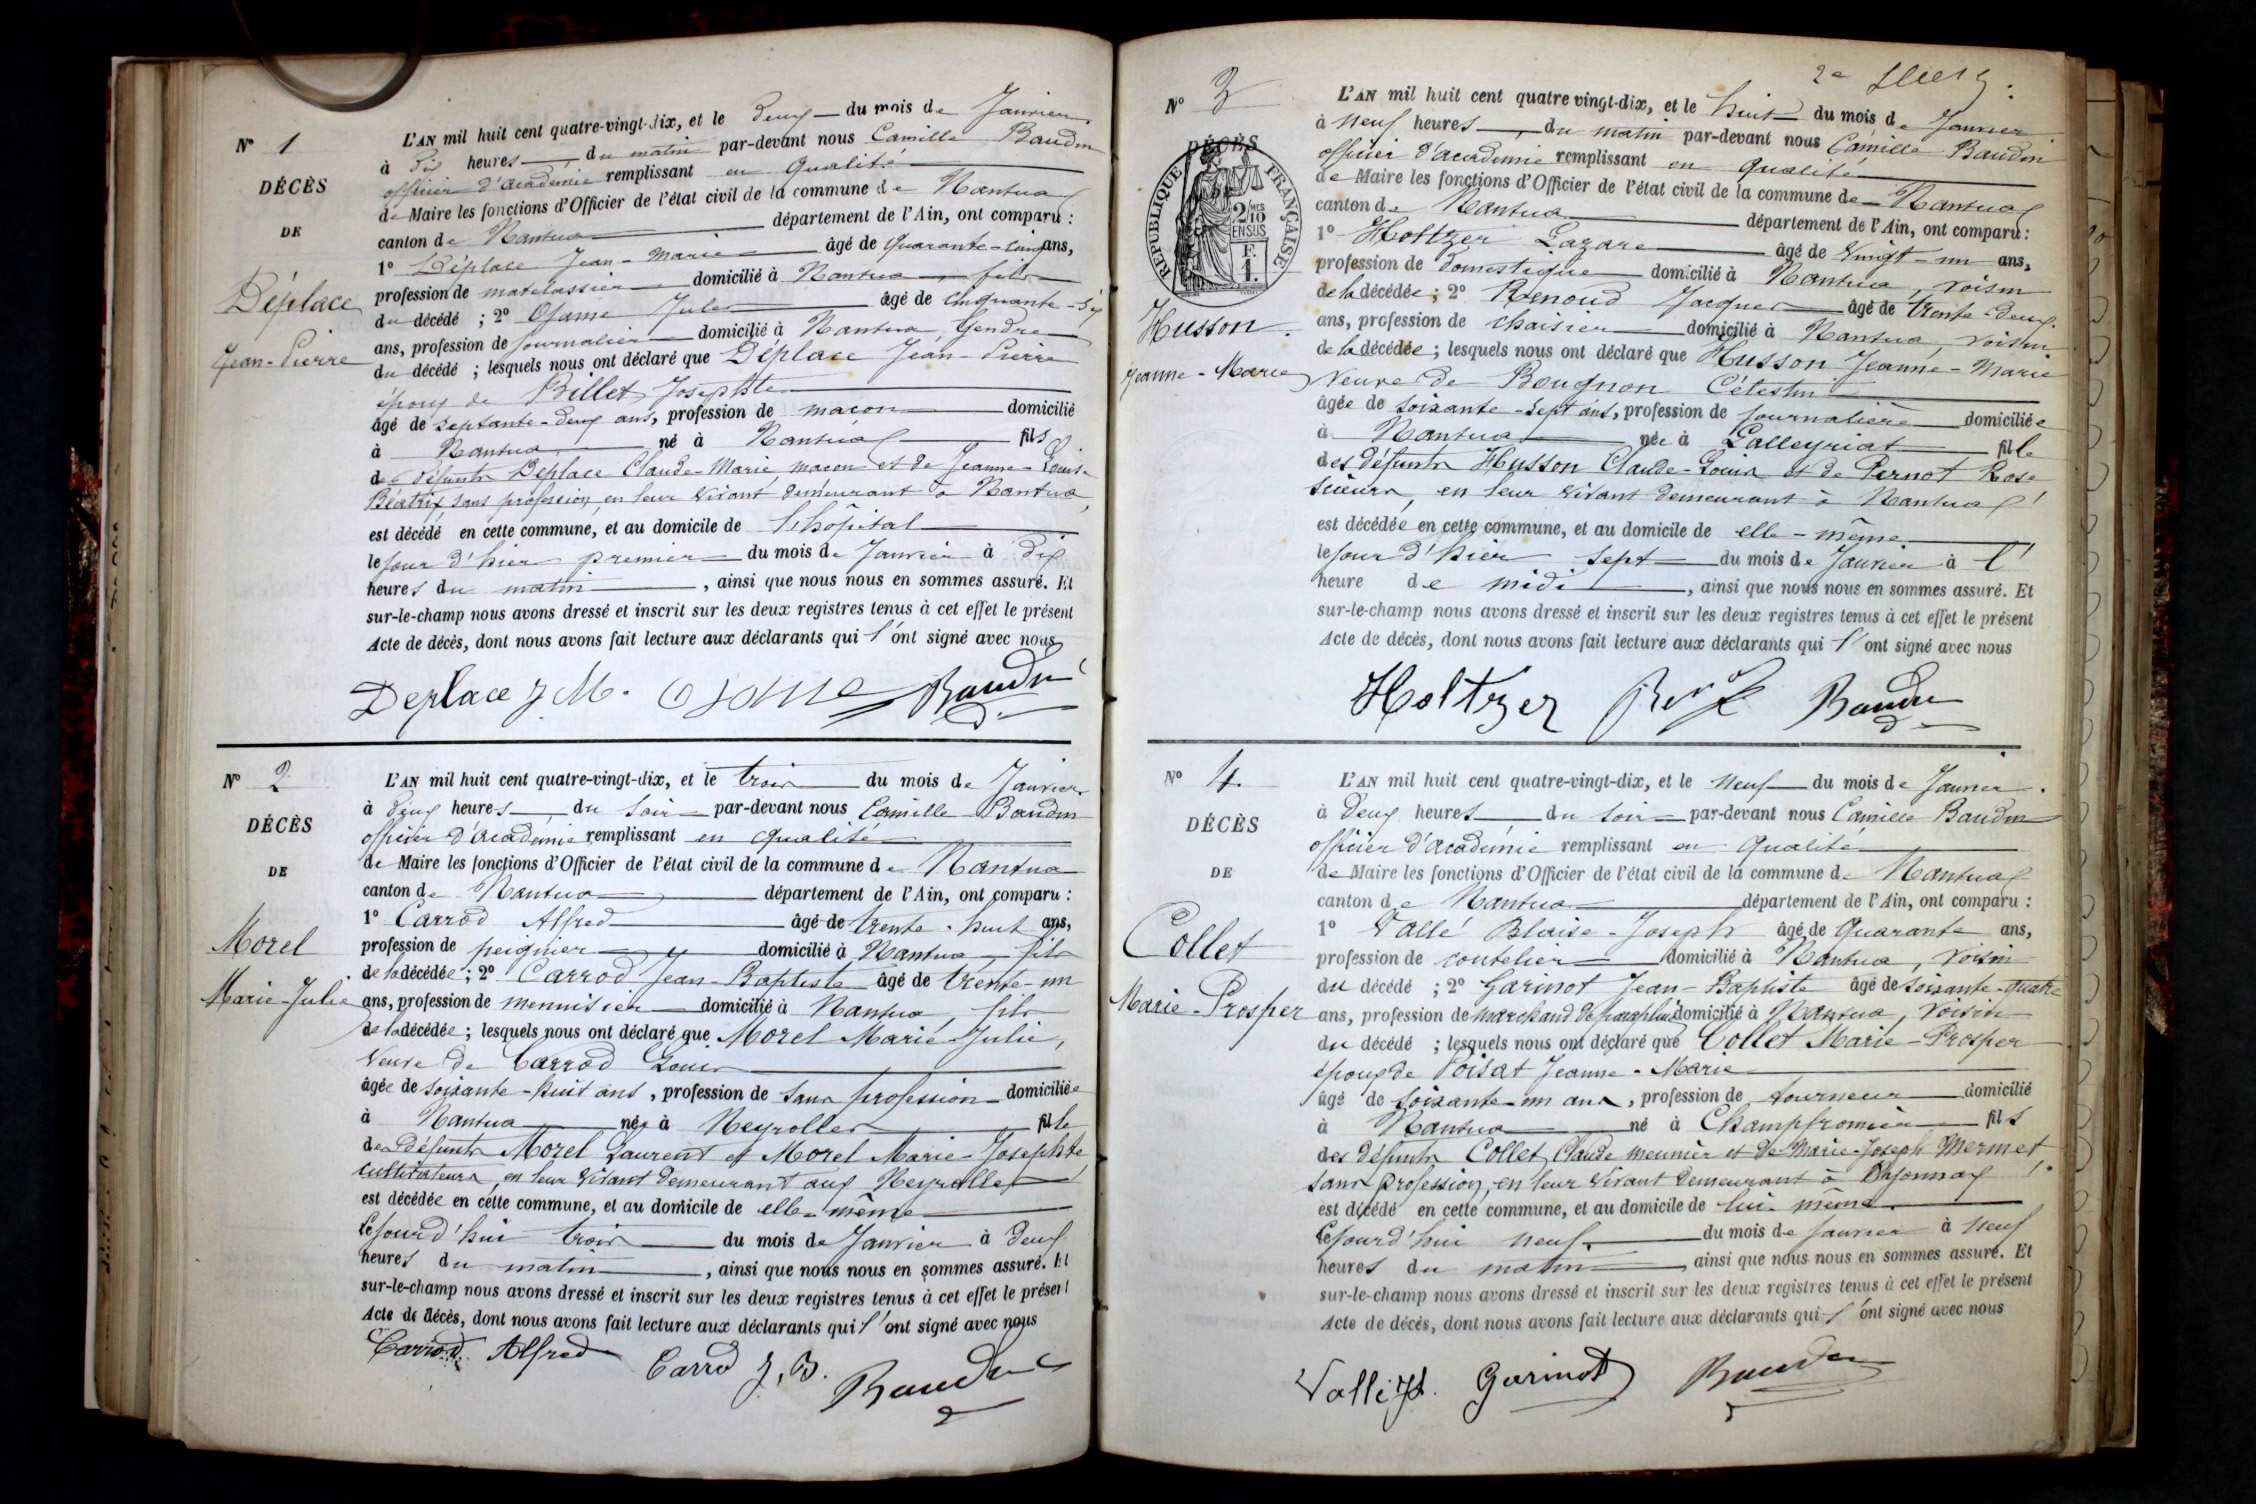 N° 1
DÉCÈS
DE
Déplace
Jean-Pierre
L'AN mil huit cent quatre-vingt-dix, et le deux du mois de Janvier
à dix heures du matin par-devant nous Camille Baudin
officier d'académie remplissant en qualité
de Maire les fonctions d'Officier de l'état civil de la commune de Nantua
canton de Nantua département de l'Ain, ont comparu :
1° Déplace Jean-Marie âgé de quarante-cinq ans,
profession de matelassier domicilié à Nantua, fils
du décédé ; 2° Ojame Jules âgé de cinquante-six
ans, profession de journalier domicilié à Nantua, gendre
du décédé ; lesquels nous ont déclaré que Déplace Jean-Pierre
époux de Billet Josephte
âgé de septante-deux ans, profession de maçon domicilié
à Nantua né à Nantua fils
des défunts Déplace Claude-Marie maçon et de Jeanne-Louise
Béatrix sans profession, en leur vivant demeurant à Nantua,
est décédé en cette commune, et au domicile de l'hôpital
le jour d'hier premier du mois de Janvier à dix
heures du matin, ainsi que nous nous en sommes assuré. Et
sur-le-champ nous avons dressé et inscrit sur les deux registres tenus à cet effet le présent
Acte de décès, dont nous avons fait lecture aux déclarants qui l'ont signé avec nous
Deplace J M. Ojame Baudin
N° 2
DÉCÈS
DE
Morel
Marie-Julie
L'AN mil huit cent quatre-vingt-dix, et le trois du mois de Janvier
à deux heures du soir par-devant nous Camille Baudin
officier d'académie remplissant en qualité
de Maire les fonctions d'Officier de l'état civil de la commune de Nantua
canton de Nantua département de l'Ain, ont comparu :
1° Carrod Alfred âgé de trente-huit ans,
profession de peignier domicilié à Nantua, fils
de la décédée ; 2° Carrod Jean-Baptiste âgé de trente-un
ans, profession de menuisier domicilié à Nantua, fils
de la décédée ; lesquels nous ont déclaré que Morel Marie-Julie,
veuve de Carrod Louis
âgée de soixante-huit ans, profession de sans profession domiciliée
à Nantua née à Neyrolles fille
des défunts Morel Laurent et Morel Marie-Josephte
cultivateurs, en leur vivant demeurant aux Neyrolles
est décédée en cette commune, et au domicile de elle-même
le jourd'hui trois du mois de Janvier à deux
heures du matin, ainsi que nous nous en sommes assuré. Et
sur-le-champ nous avons dressé et inscrit sur les deux registres tenus à cet effet le présent
Acte de décès, dont nous avons fait lecture aux déclarants qui l'ont signé avec nous
Carrod Alfred Carrod J, B. Baudin
2e
N° 3
DÉCÈS
RÉPUBLIQUE FRANÇAISE
2/10 MES
EN SUS
F.
1.
Husson
Jeanne-Marie
L'AN mil huit cent quatre vingt-dix, et le huit du mois de Janvier
à neuf heures du matin par-devant nous Camille Baudin
officier d'académie remplissant en qualité
de Maire les fonctions d'Officier de l'état civil de la commune de Nantua
canton de Nantua département de l'Ain, ont comparu :
1° Holtzer Lazare âgé de vingt-un ans,
profession de domestique domicilié à Nantua, voisin
de la décédée ; 2° Renoud Jacques âgé de trente-deux
ans, profession de chaisier domicilié à Nantua, voisin
de la décédée ; lesquels nous ont déclaré que Husson Jeanne-Marie
veuve de Bougnon Célestin
âgée de soixante-sept ans, profession de journalière domiciliée
à Nantua née à Lalleyriat fille
des défunts Husson Claude-Louis et de Pernot Rose
scieurs, en leur vivant demeurant à Nantua
est décédée en cette commune, et au domicile de elle-même
le jour d'hier sept du mois de Janvier à l'
heure de midi, ainsi que nous nous en sommes assuré. Et
sur-le-champ nous avons dressé et inscrit sur les deux registres tenus à cet effet le présent
Acte de décès, dont nous avons fait lecture aux déclarants qui l'ont signé avec nous
Holtzer Baudin
N° 4.
DÉCÈS
DE
Collet
Marie-Prosper
L'AN mil huit cent quatre-vingt-dix, et le neuf du mois de Janvier.
à deux heures du soir par-devant nous Camille Baudin
officier d'académie remplissant en qualité
de Maire les fonctions d'Officier de l'état civil de la commune de Nantua
canton de Nantua département de l'Ain, ont comparu :
1° Vallé Blaise-Joseph âgé de quarante ans,
profession de coutelier domicilié à Nantua, voisin
du décédé ; 2° Garinot Jean-Baptiste âgé de soixante-quatre
ans, profession de marchand de parapluies domicilié à Nantua, voisin
du décédé ; lesquels nous ont déclaré que Collet Marie-Prosper
époux de Poisat Jeanne-Marie
âgé de soixante-un ans, profession de tourneur domicilié
à Nantua né à Champfromier fils
des défunts Collet Claude meunier et de Marie-Joseph Mermet
sans profession, en leur vivant demeurant à Oyonnax
est décédé en cette commune, et au domicile de lui-même
le jourd'hui neuf du mois de Janvier à neuf
heures du matin ainsi que nous nous en sommes assuré. Et
sur-le-champ nous avons dressé et inscrit sur les deux registres tenus à cet effet le présent
Acte de décès, dont nous avons fait lecture aux déclarants qui l'ont signé avec nous
Garinot Baudin